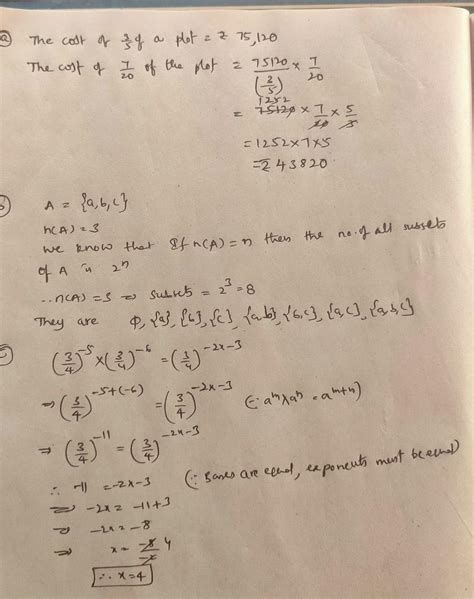 a) The cost of 3/5 of a plot = ₹ 75,120
The cost of 7/20 of the plot = 75120/(3/5) × 7/20
= 1252 75120 × 7/20 × 5/3
= 1252×7×5
= ₹ 43820
b) A = {a,b,c}
n(A) = 3
we know that If n(A) = n then the no. of all subsets
of A is 2^n
∴ n(A) = 3 ⇒ Subsets = 2^3 = 8
They are Φ, {a}, {b}, {c}, {a,b}, {b,c}, {a,c}, {a,b,c}
c) (3/4)^-5 × (3/4)^-6 = (3/4)^-2x-3
⇒ (3/4)^-5+(-6) = (3/4)^-2x-3 (∵ a^m × a^n = a^m+n)
⇒ (3/4)^-11 = (3/4)^-2x-3
∴ -11 = -2x-3 (∵ Bases are equal, exponents must be equal)
⇒ -2x = -11+3
⇒ -2x = -8
⇒ x = -8/-2 4
∴ x=4